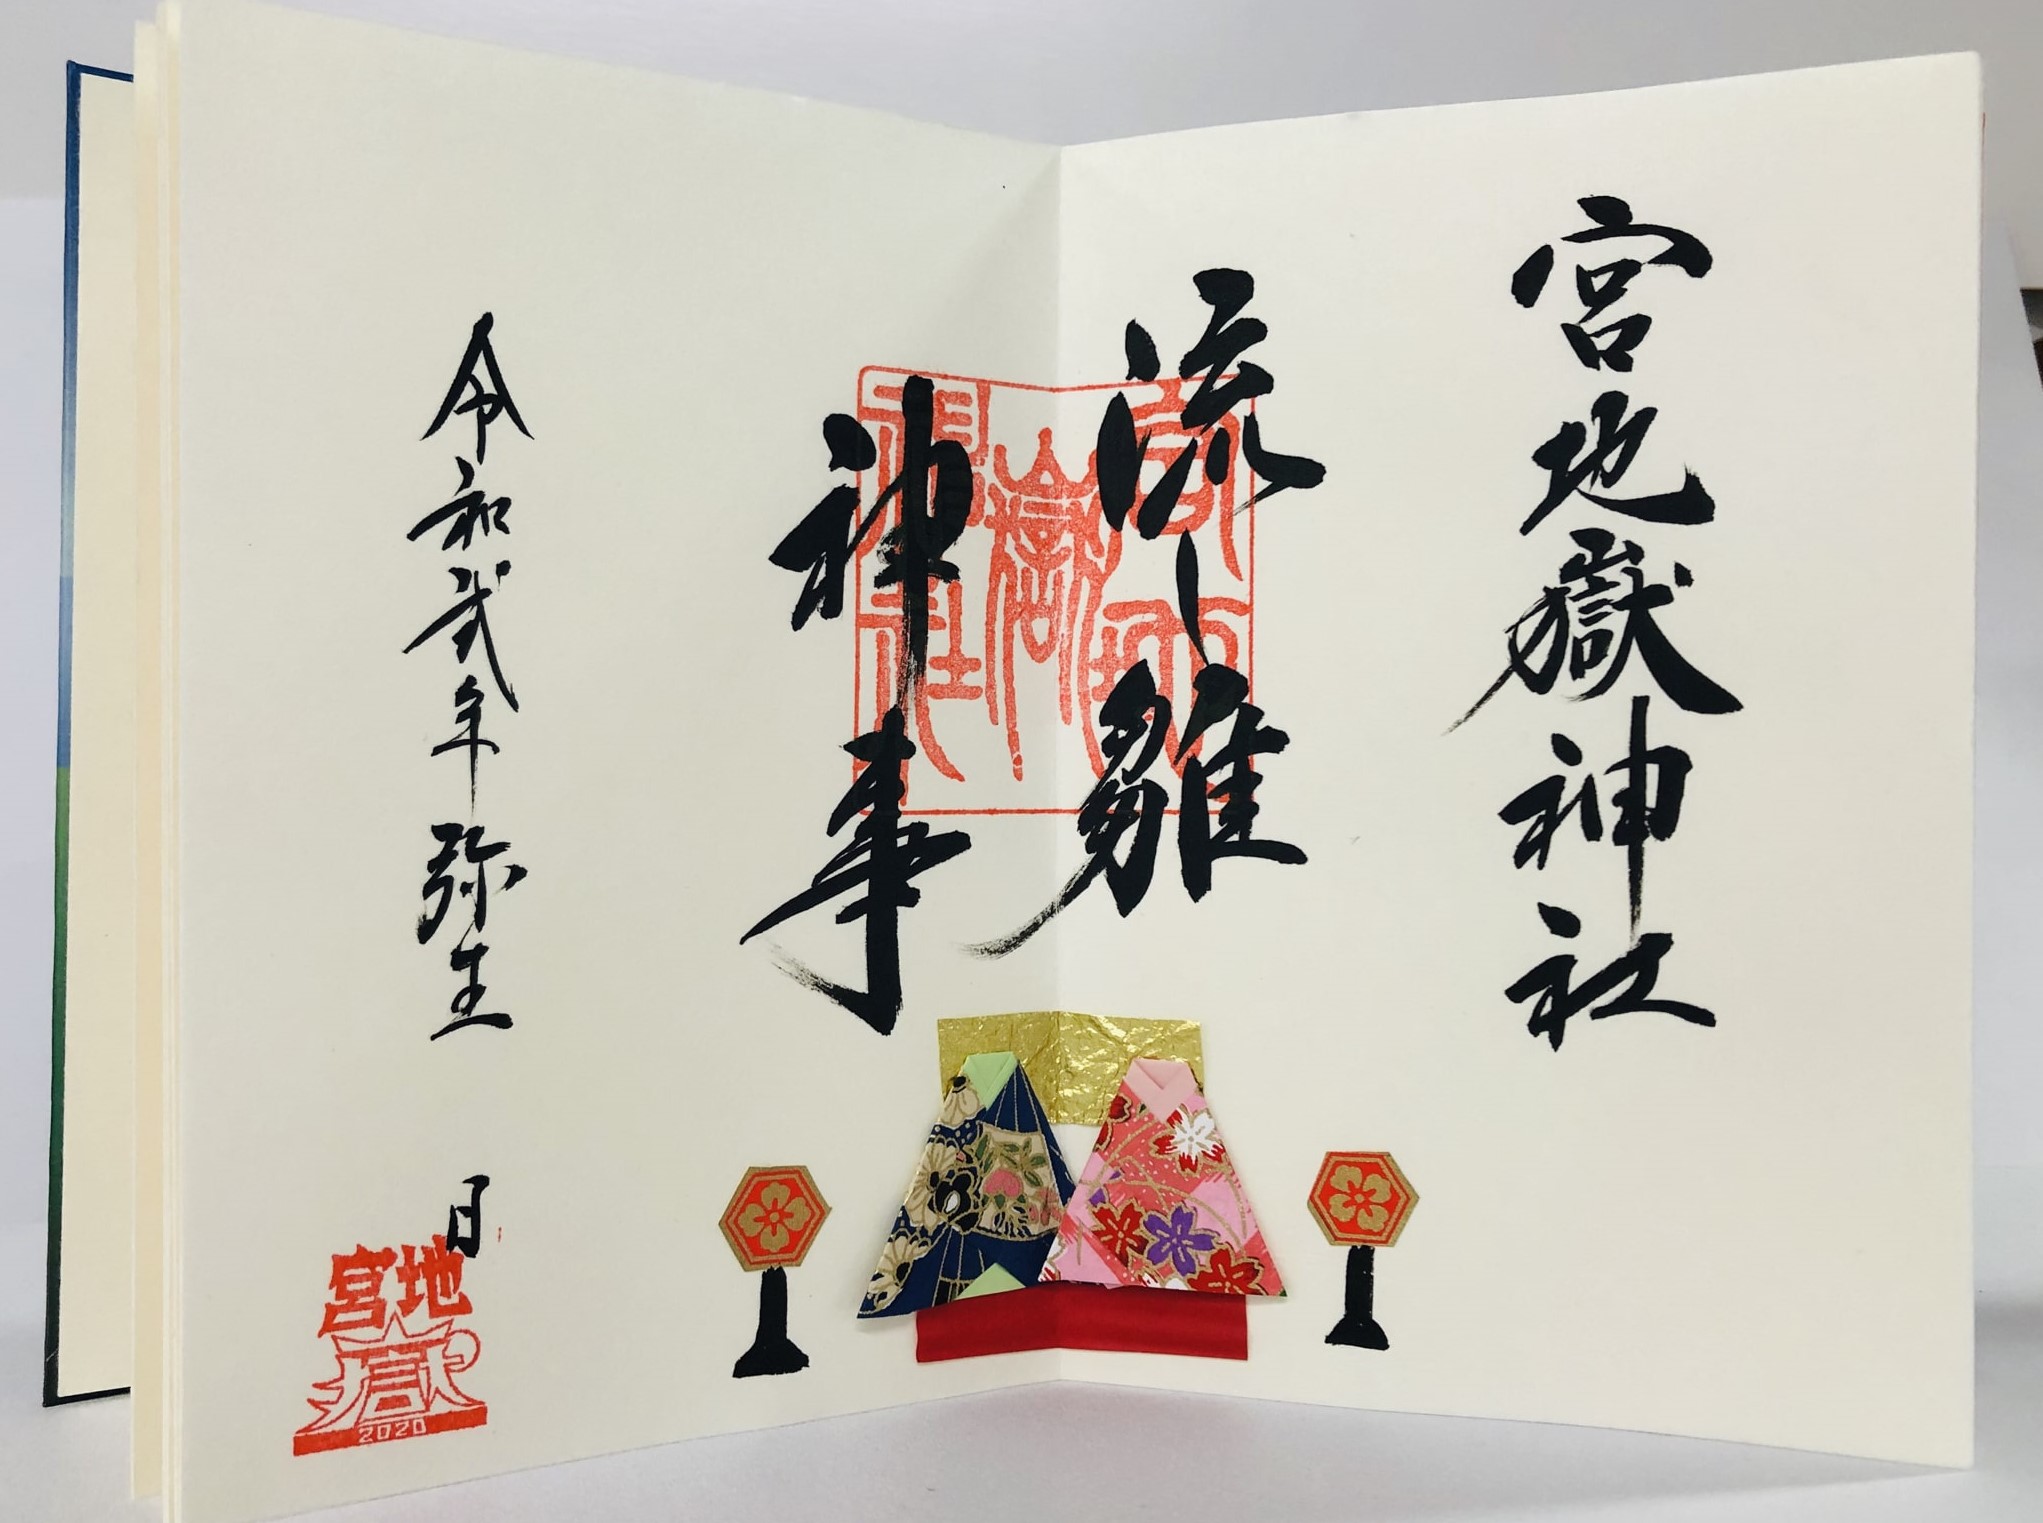 宮地嶽神社
流し雛
神事
令和弐年弥生
日
宮地
嶽
2020